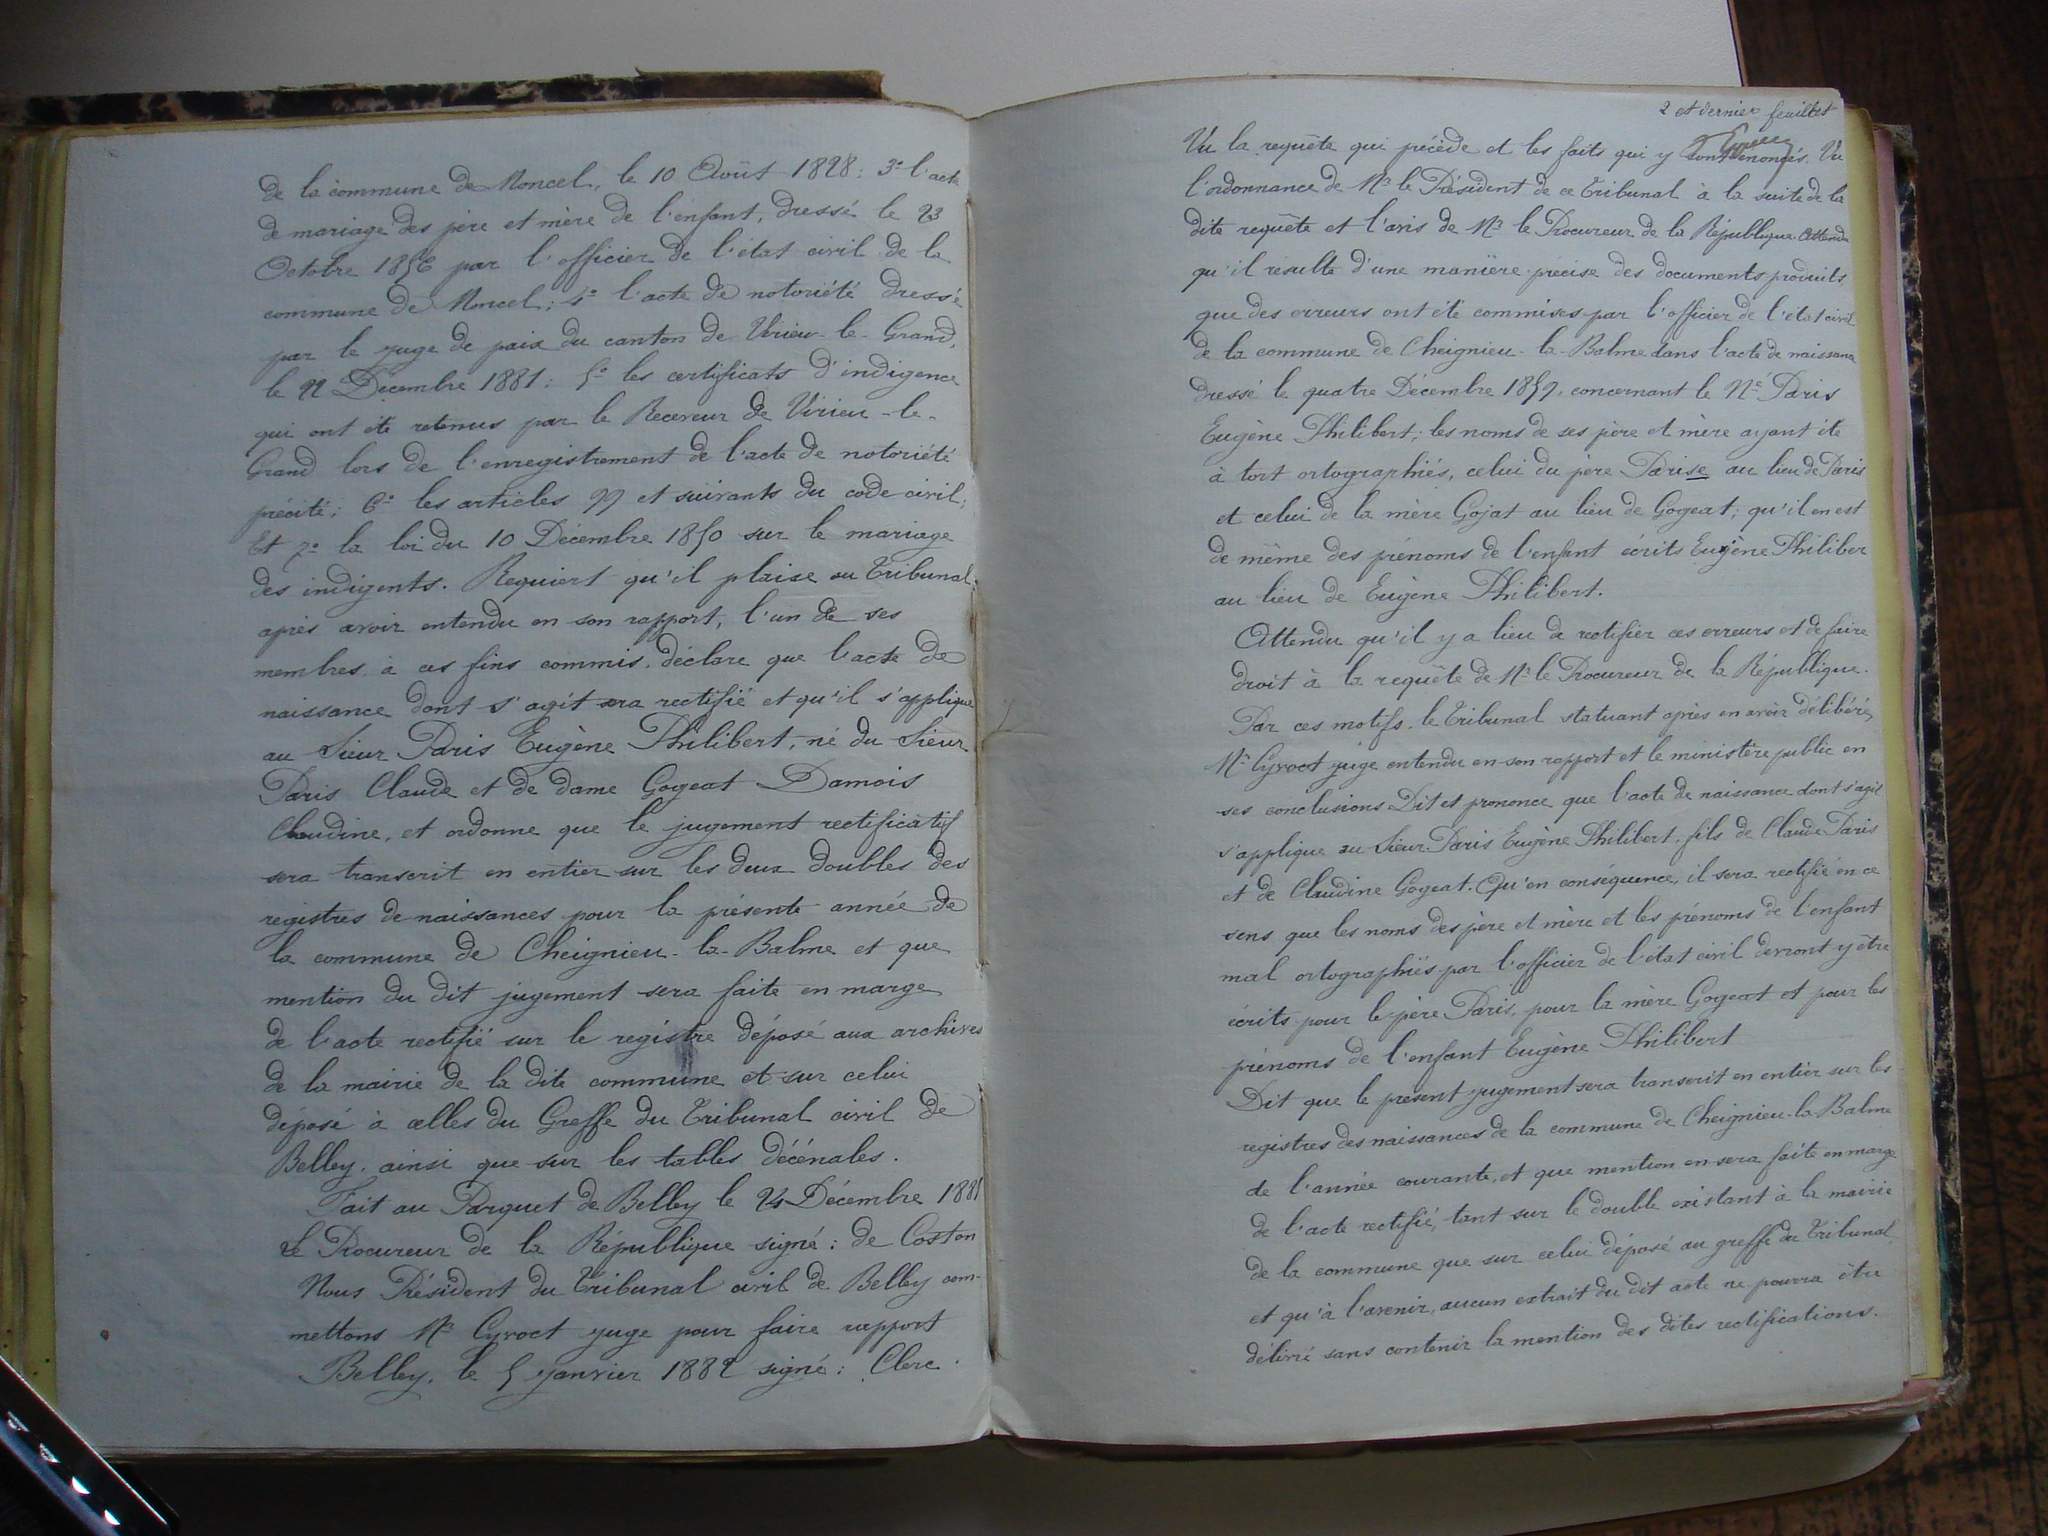 de la commune de Moncel, le 10 Août 1828 ; 3º l'acte
de mariage des père et mère de l'enfant, dressé le 23
Octobre 1856 par l'officier de l'état civil de la
commune de Moncel ; 4º l'acte de notoriété dressé
par le juge de paix du canton de Virieu-le-Grand,
le 22 Décembre 1881 ; 5º les certificats d'indigence
qui ont été retenus par le Receveur de Virieu-le-
Grand lors de l'enregistrement de l'acte de notoriété
précité ; 6º les articles 99 et suivants du code civil ;
Et 7º la loi du 10 Décembre 1850 sur le mariage
des indigents. Requiert qu'il plaise au Tribunal,
après avoir entendu en son rapport, l'un de ses
membres à ces fins commis, déclare que l'acte de
naissance dont s'agit sera rectifié et qu'il s'applique
au Sieur Paris Eugène Philibert, né du Sieur
Paris Claude et de dame Gogeat Damois
Claudine, et ordonne que le jugement rectificatif
sera transcrit en entier sur les deux doubles des
registres de naissances pour la présente année de
la commune de Cheignieu-la-Balme et que
mention du dit jugement sera faite en marge
de l'acte rectifié sur le registre déposé aux archives
de la mairie de la dite commune et sur celui
déposé à celles du Greffe du Tribunal civil de
Belley, ainsi que sur les tables décénales.
Fait au Parquet de Belley le 24 Décembre 1881
Le Procureur de la République signé : de Coston
Nous Président du Tribunal civil de Belley com-
mettons Mr Cyroct juge pour faire rapport
Belley, le 5 janvier 1882 signé : Clerc.
2 et dernier feuillet
Vu la requête qui précède et les faits qui y sont énoncés. Vu
l'ordonnance de Mr le Président de ce Tribunal à la suite de la
dite requête et l'avis de Mr le Procureur de la République. Attendu
qu'il résulte d'une manière précise des documents produits
que des erreurs ont été commises par l'officier de l'état civil
de la commune de Cheignieu-la-Balme dans l'acte de naissance
dressé le quatre Décembre 1859, concernant le Né Paris
Eugène Philibert ; les noms de ses père et mère ayant été
à tort ortographiés, celui du père Parise au lieu de Paris
et celui de la mère Gojat au lieu de Gogeat ; qu'il en est
de même des prénoms de l'enfant écrits Eugène Philiber
au lieu de Eugène Philibert.
Attendu qu'il y a lieu de rectifier ces erreurs et de faire
droit à la requête de Mr le Procureur de la République.
Par ces motifs, le Tribunal statuant après en avoir délibéré,
Mr Cyroct juge entendu en son rapport et le ministère public en
ses conclusions Dit et prononce que l'acte de naissance dont s'agit
s'applique au Sieur Paris Eugène Philibert, fils de Claude Paris
et de Claudine Gogeat. Qu'en conséquence, il sera rectifié en ce
sens que les noms des père et mère et les prénoms de l'enfant
mal ortographiés par l'officier de l'état civil devront y être
écrits pour le père Paris, pour la mère Gogeat et pour les
prénoms de l'enfant Eugène Philibert
Dit que le présent jugement sera transcrit en entier sur les
registres des naissances de la commune de Cheignieu-la-Balme
de l'année courante, et que mention en sera faite en marge
de l'acte rectifié, tant sur le double existant à la mairie
de la commune que sur celui déposé au greffe du Tribunal,
et qu'à l'avenir, aucun extrait du dit acte ne pourra être
délivré sans contenir la mention des dites rectifications.